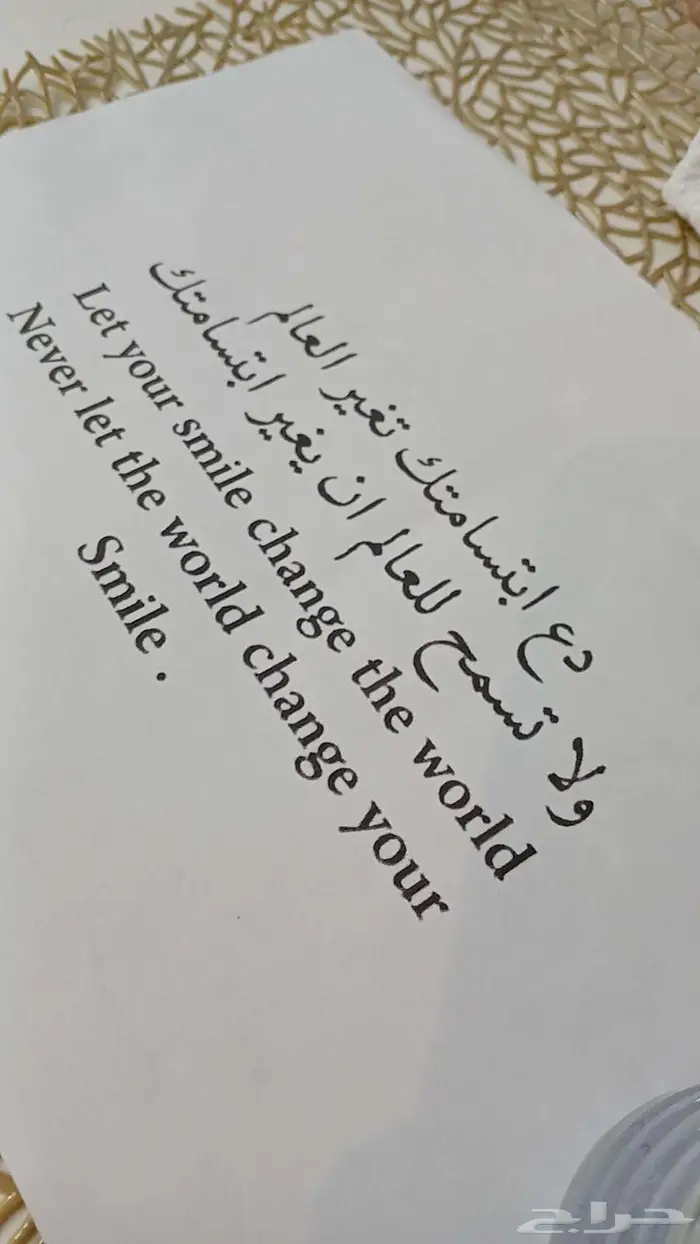 دع ابتسامتك تغير العالم
ولا تسمح للعالم ان يغير ابتسامتك
Let your smile change the world
Never let the world change your
Smile .
حراج